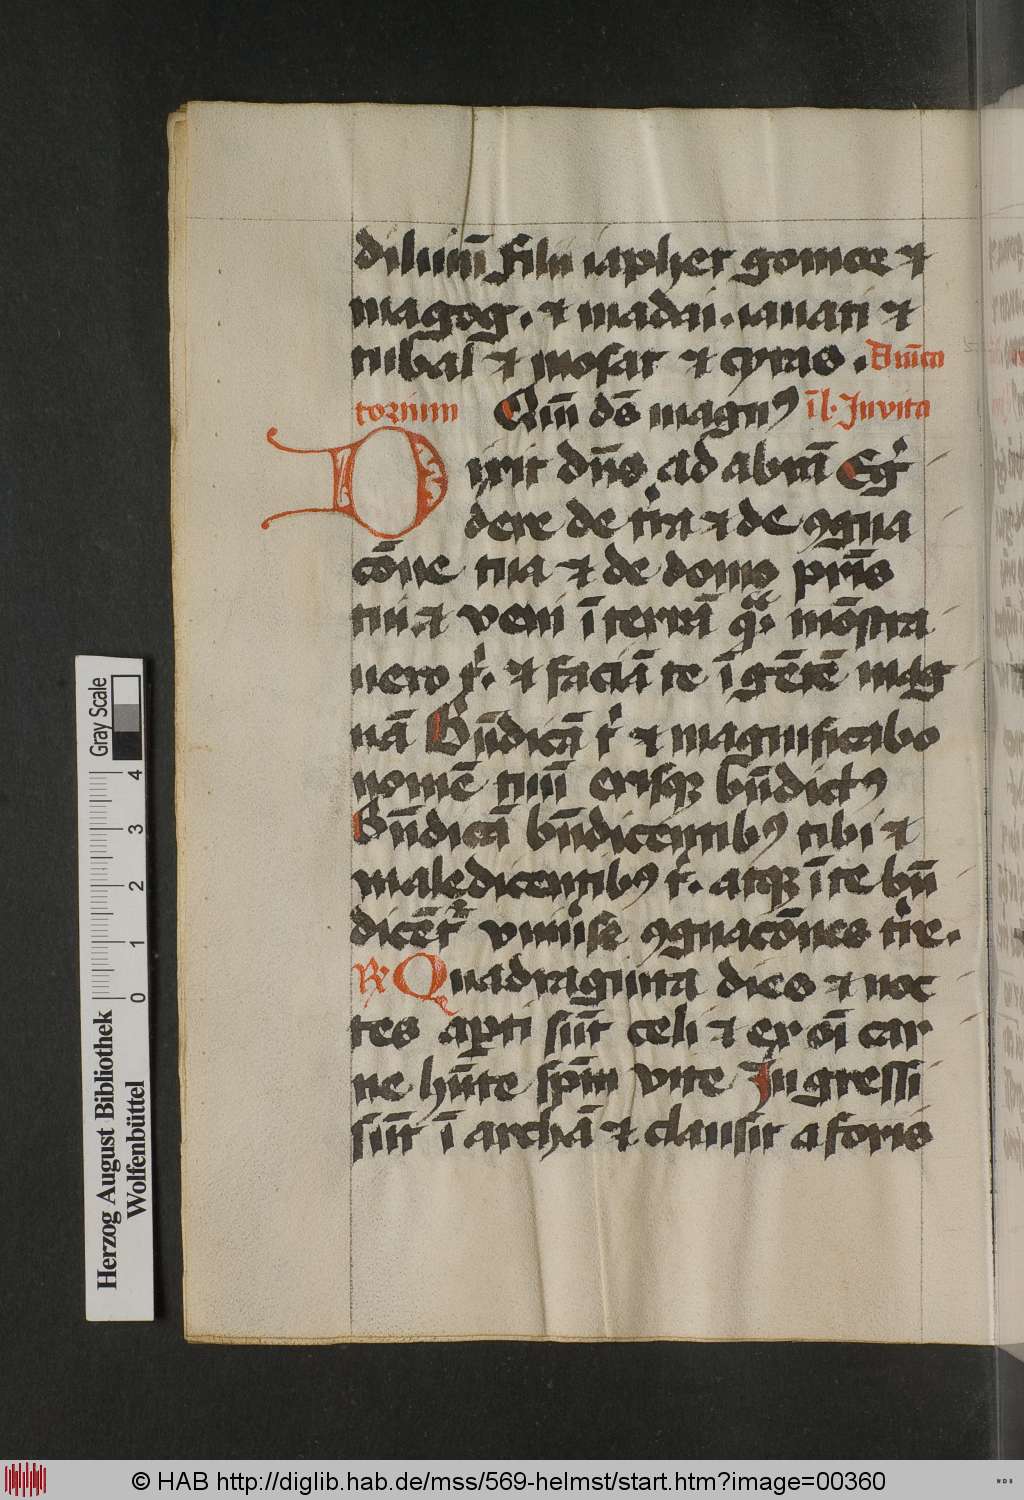 diluuiū filii iaphet gomor et
magog . et madai . iauan et
tubal et mosar et cyras . A iuīta
torium Qm̄ ds̄ magnꝰ īb. Invita
Dixit dn̄s ad abrā Eg̾
dere de tr̾a et de ꝯgna
cōne tua et de domo pr̄is
tui . et veni ī terrā quā . mōstra
uero t̾ . et faciā te ī gētē mag
nā Bn̄dicā t̾ et magnificabo
nomē tuū erisqꝫ bn̄dictꝰ
Bn̄dicā bn̄dicentibꝰ tibi et
maledicentibꝰ t̾ . atqꝫ ī te bn̄
dicēt̾ vniu̾se ꝯgnacōnes tr̾e .
Rx Quadraginta dies et noc
tes aꝑti sūt celi et ex oī car
ne hn̄te spm̄ vite Ingressi
sūt ī archā et clausit a foris
Gray Scale
4 3 2 1 0
Herzog August Bibliothek
Wolfenbüttel
© HAB http://diglib.hab.de/mss/569-helmst/start.htm?image=00360